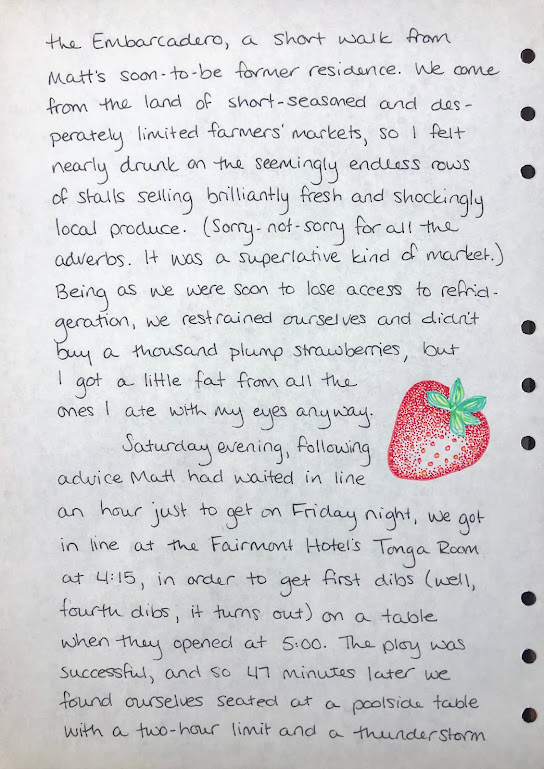 the Embarcadero, a short walk from
Matt's soon-to-be former residence. We come
from the land of short-seasoned and des-
perately limited farmers' markets, so I felt
nearly drunk on the seemingly endless rows
of stalls selling brilliantly fresh and shockingly
local produce. (Sorry-not-sorry for all the
adverbs. It was a superlative kind of market.)
Being as we were soon to lose access to refrid-
geration, we restrained ourselves and didn't
buy a thousand plump strawberries, but
I got a little fat from all the
ones I ate with my eyes anyway.
Saturday evening, following
advice Matt had waited in line
an hour just to get on Friday night, we got
in line at the Fairmont Hotel's Tonga Room
at 4:15, in order to get first dibs (well,
fourth dibs, it turns out) on a table
when they opened at 5:00. The ploy was
successful, and so 47 minutes later we
found ourselves seated at a poolside table
with a two-hour limit and a thunderstorm